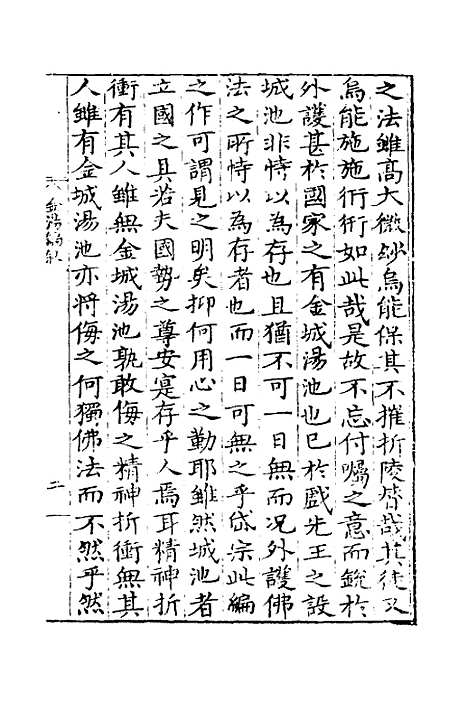 之法雖高大微紗烏能保其不摧折陵替哉其徒又
烏能施施衎衎如此哉是故不忘付囑之意而銳於
外護甚於國家之有金城湯池也已於戲先王之設
城池非恃以為存也且猶不可一日無而况外護佛
法之所恃以為存者也而一日可無之乎岱宗此編
之作可謂見之明矣抑何用心之勤耶雖然城池者
立國之具若夫國勢之尊安寔存乎人焉耳精神折
衝有其人雖無金城湯池孰敢侮之精神折衝無其
人雖有金城湯池亦將侮之何獨佛法而不然乎然
金湯編叙
二